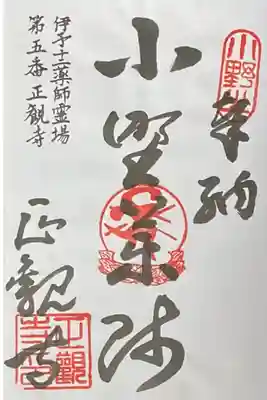 奉納
小野薬師
正観寺
伊予十二薬師霊場
第五番正観寺